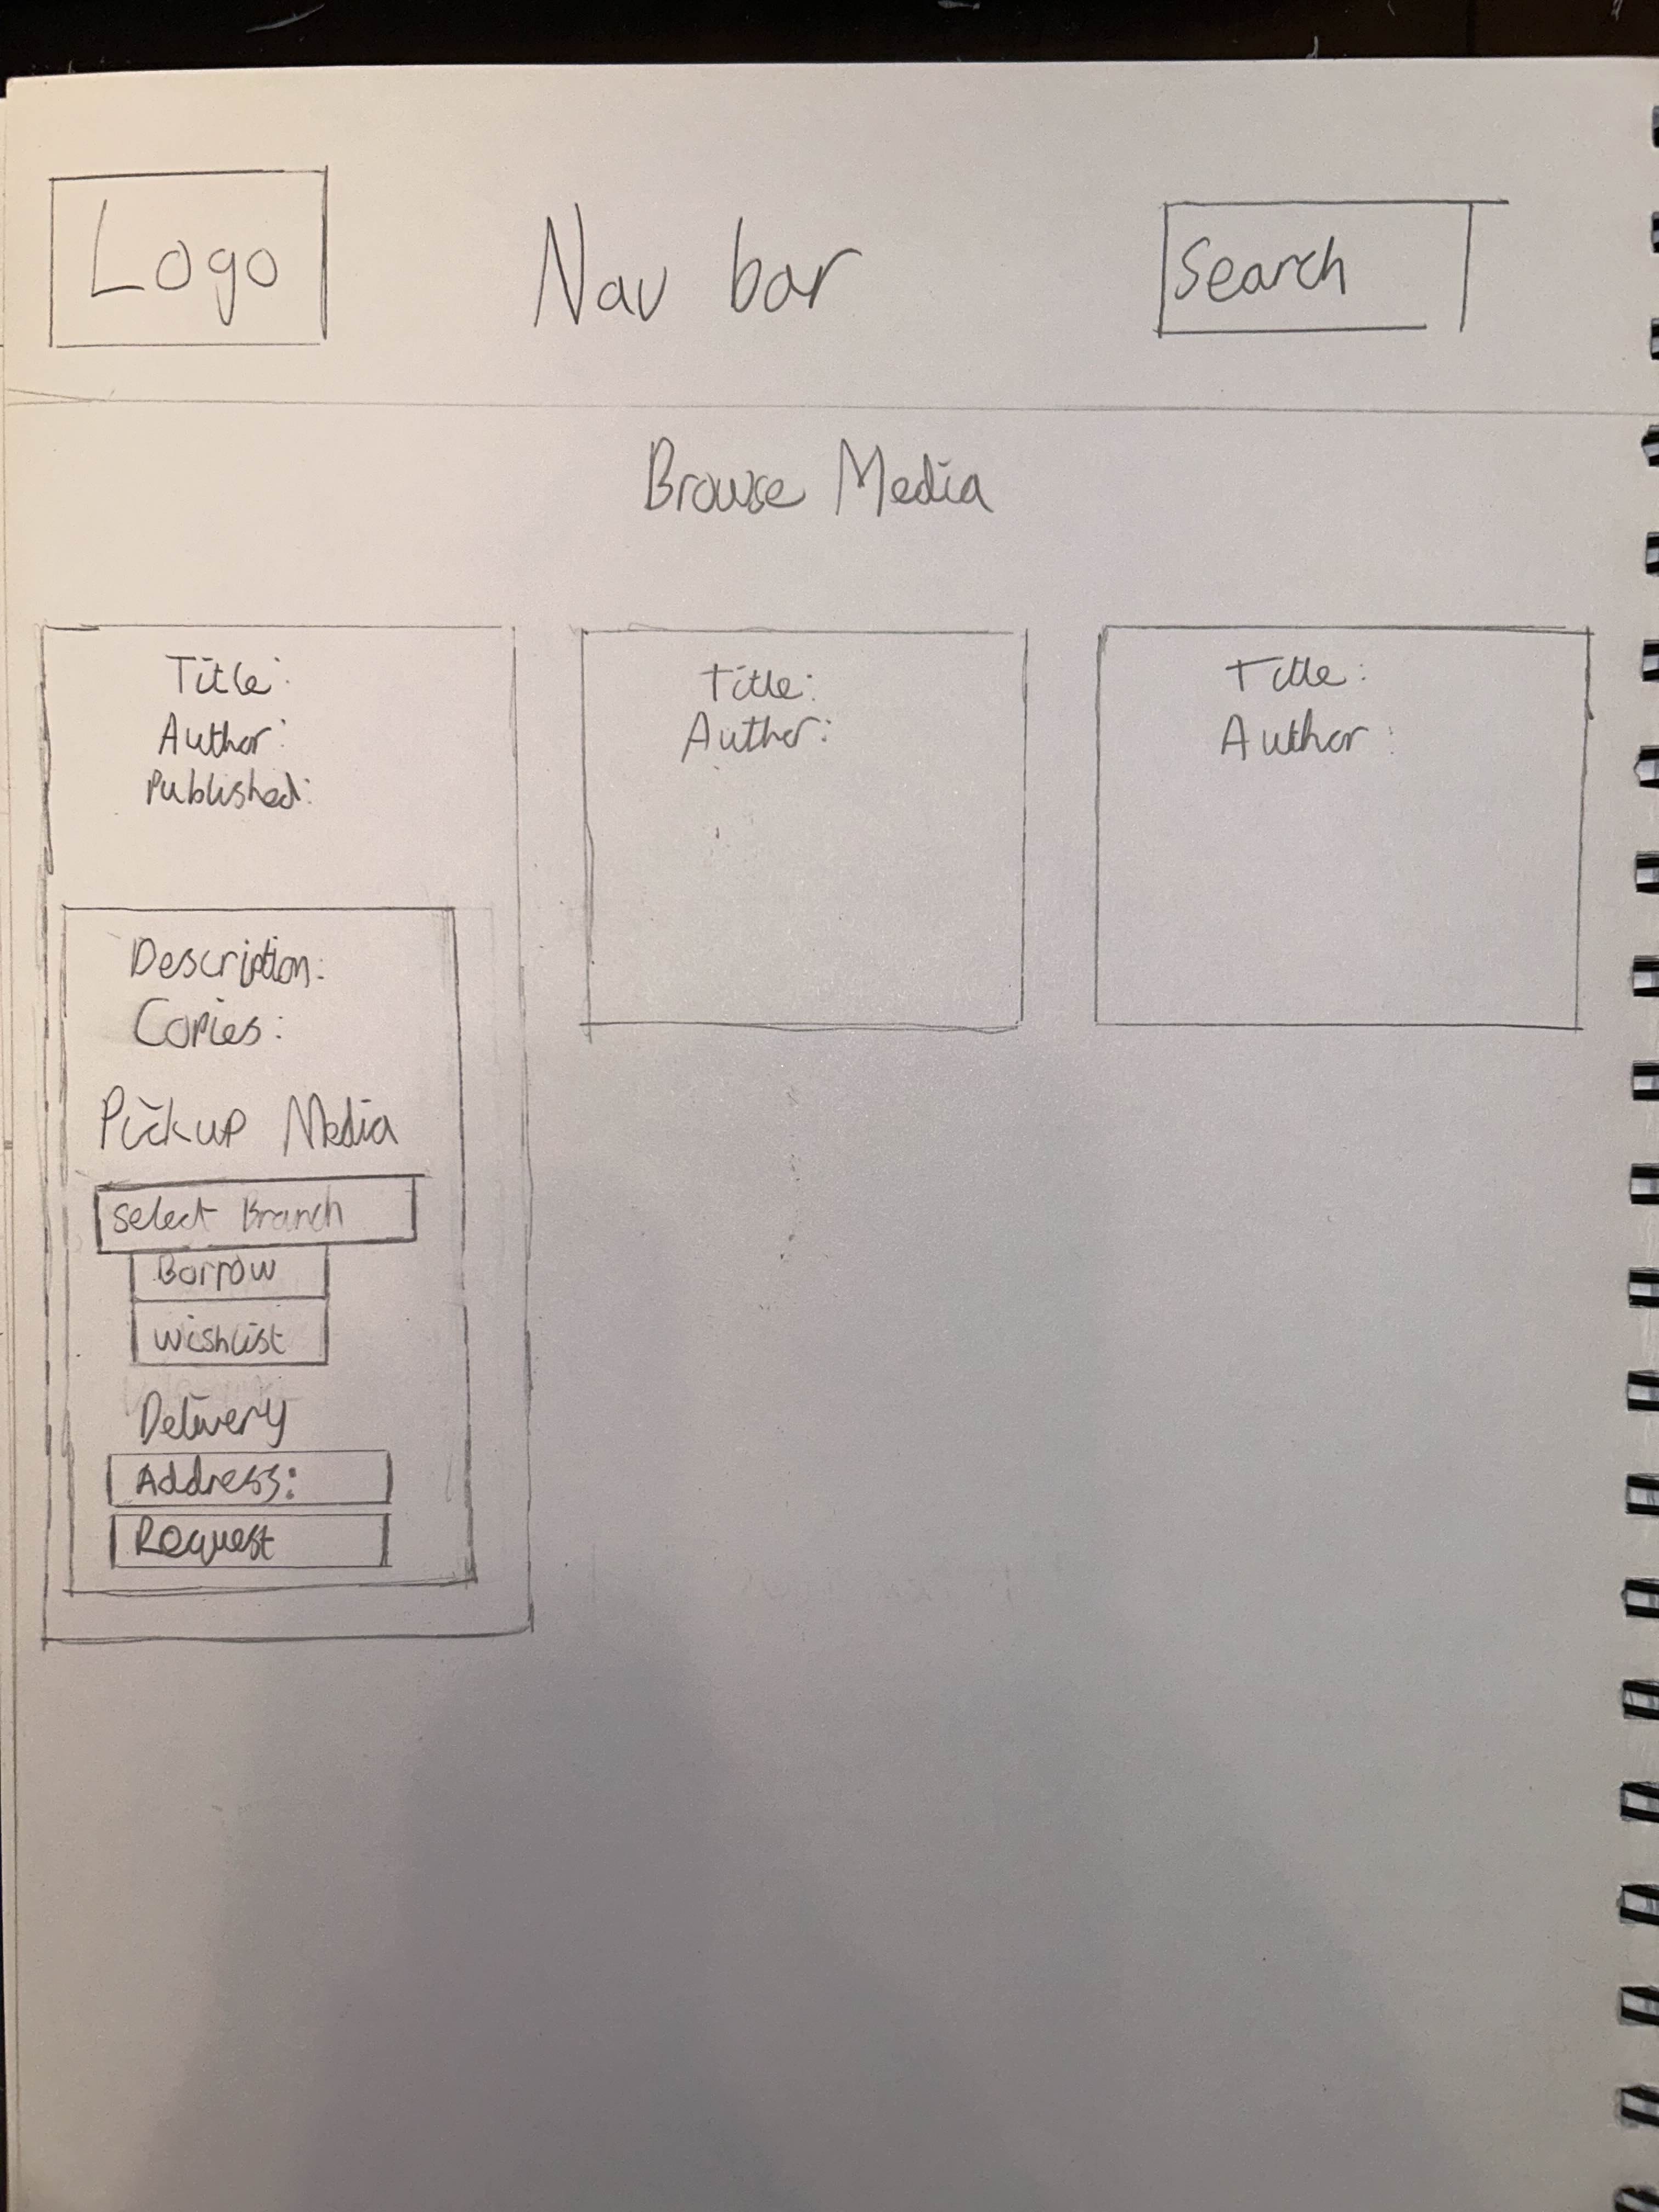 Logo
Nav bar
Search
Browse Media
Title:
Author:
Published:
Description:
Copies:
Pickup Media
Select Branch
Borrow
Wishlist
Delivery
Address:
Request
Title:
Author:
Title:
Author: